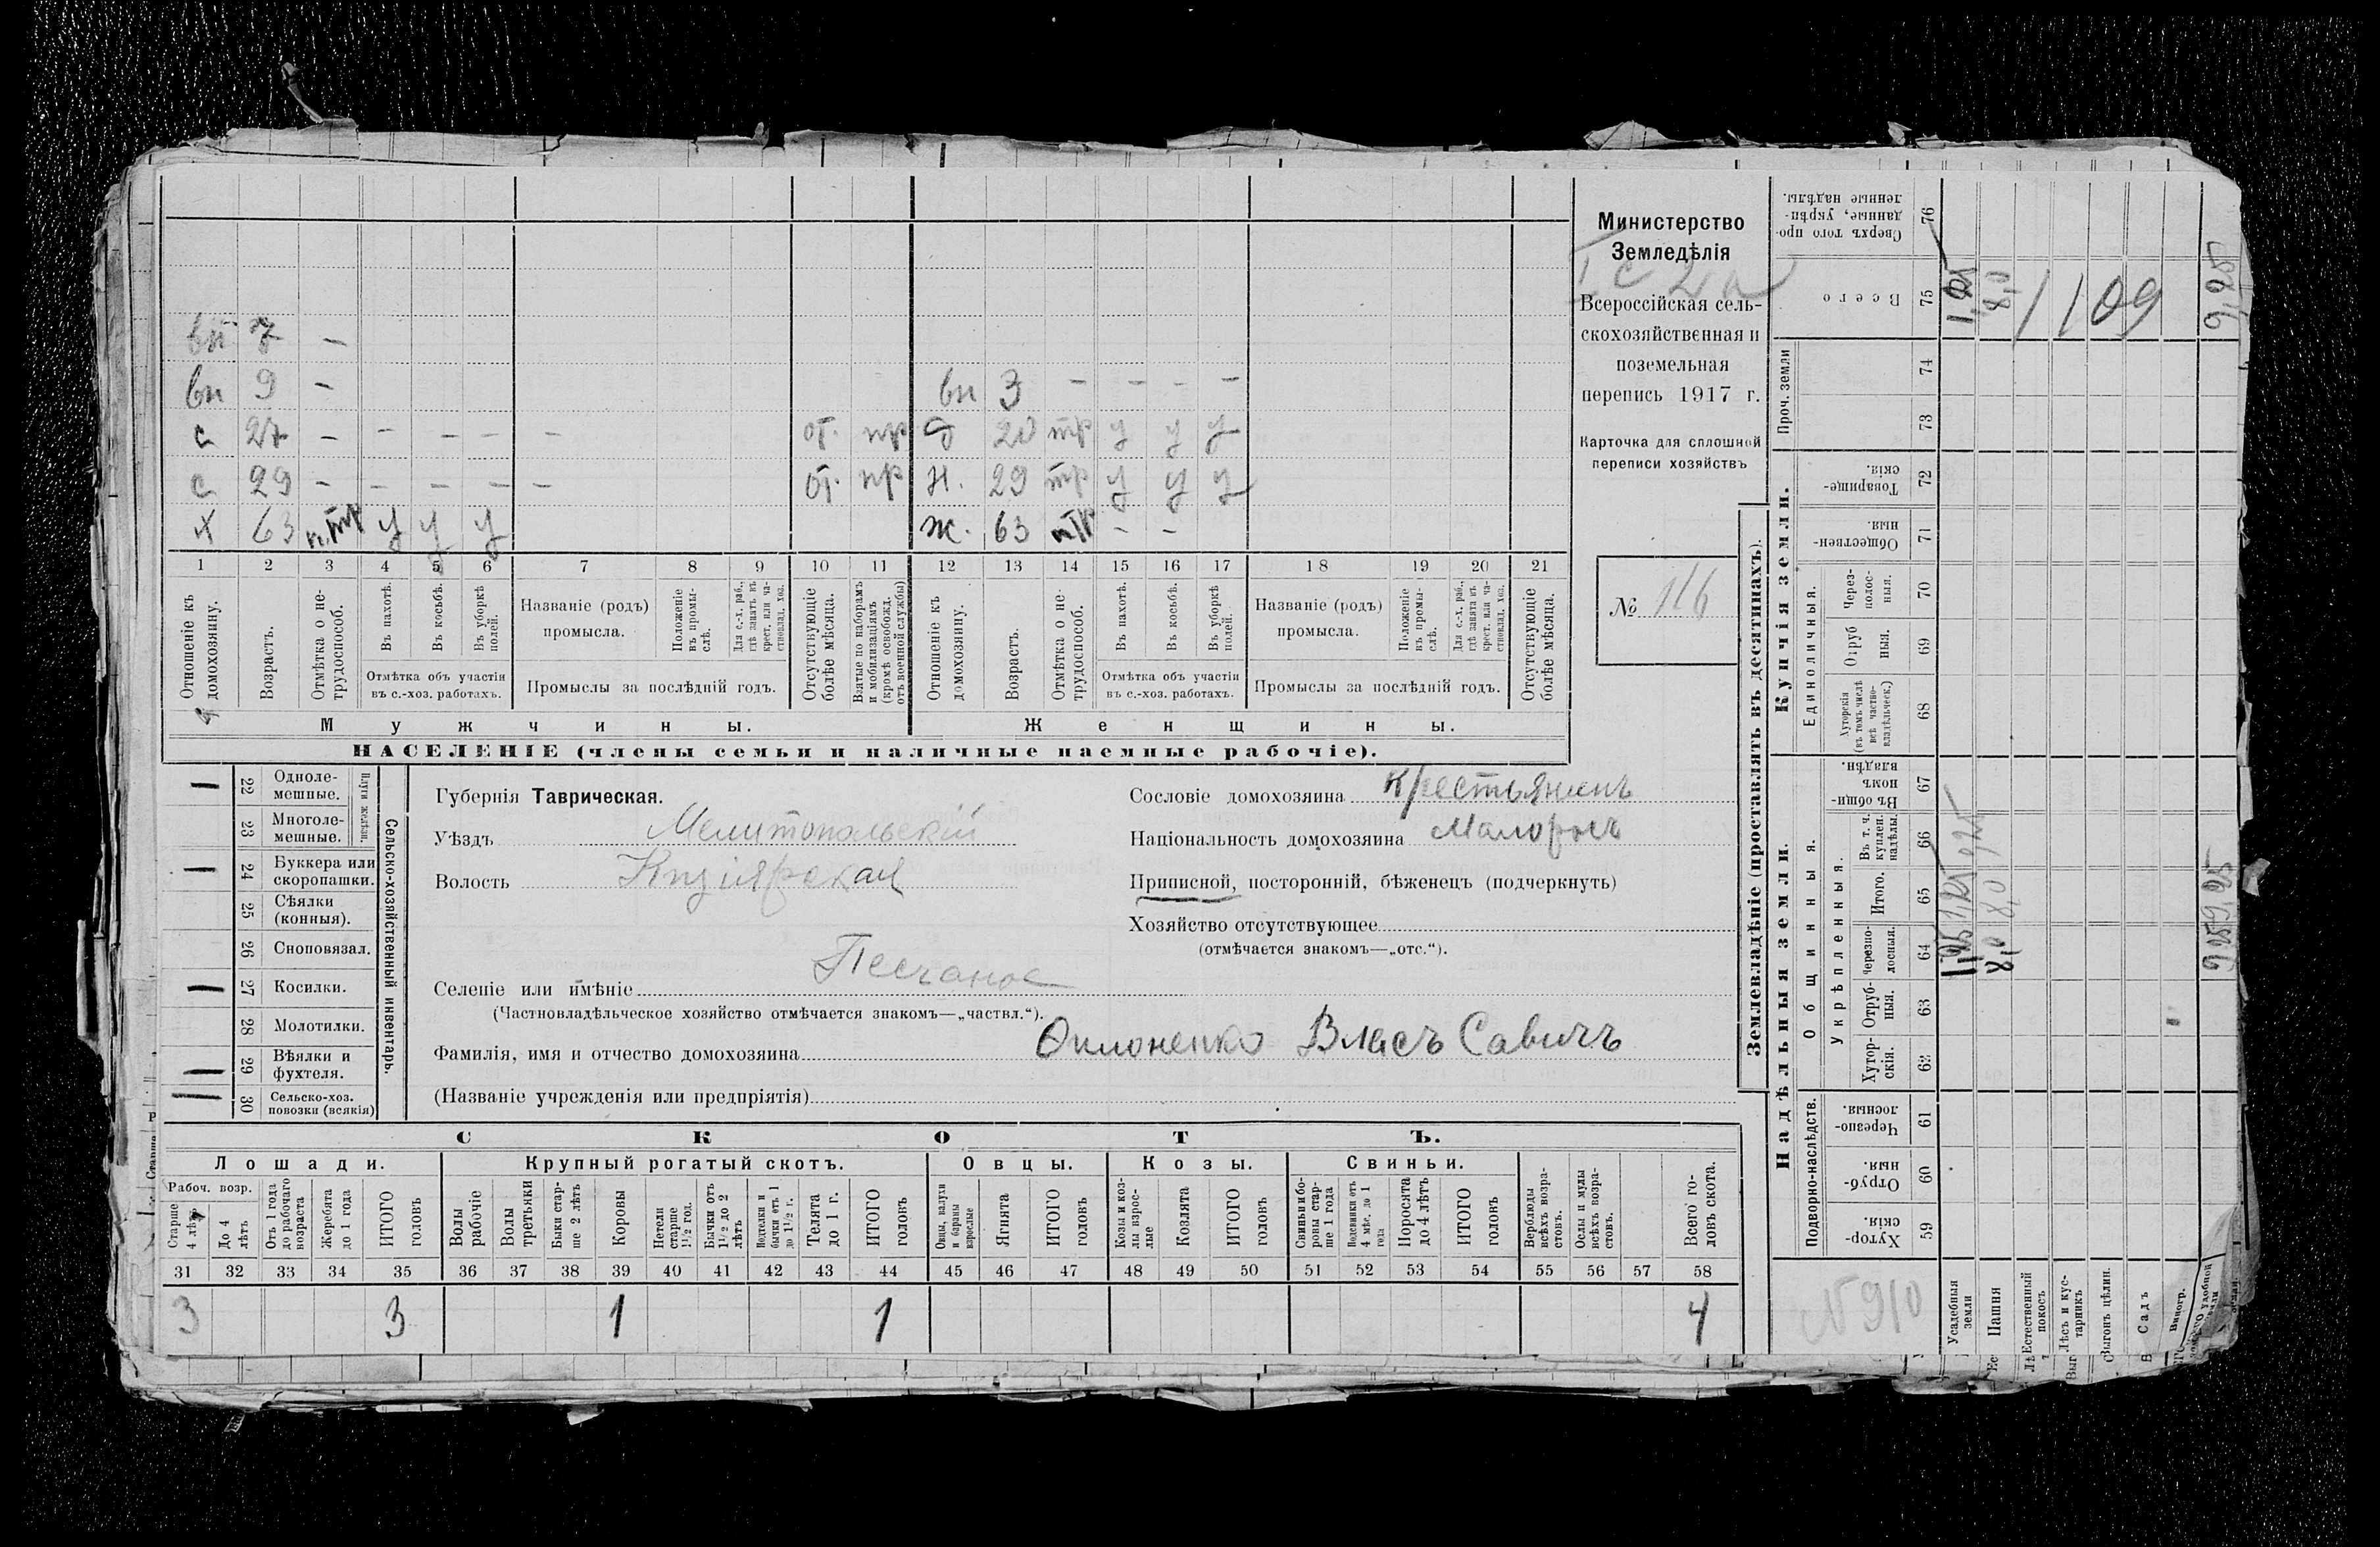 вн 7 –
вн 9 – вн 3 – – – –
с 27 – – – – – от. пр д 20 тр у у у
с 29 – – – – – от. пр н. 29 тр у у у
х 63 п.тр у у у ж. 63 птр – –
1 2 3 4 5 6 7 8 9 10 11 12 13 14 15 16 17 18 19 20 21
Отношеніе къ домохозяину.
Возрастъ.
Отмѣтка о не-трудоспособ.
Въ пахотѣ.
Въ косьбѣ.
Въ уборкѣ полей.
Отмѣтка объ участіи въ с.-хоз. работахъ.
Названіе (родъ) промысла.
Положеніе въ промы-слѣ.
Для с.-х. раб., гдѣ занятъ въ крест. или ча-стновлад. хоз.
Промыслы за послѣдній годъ.
Отсутствующіе болѣе мѣсяца.
Взятые по наборамъ и мобилизаціямъ (кромѣ освобожд. отъ военной службы)
Отношеніе къ домохозяину.
Возрастъ.
Отмѣтка о не-трудоспособ.
Въ пахотѣ.
Въ косьбѣ.
Въ уборкѣ полей.
Отмѣтка объ участіи въ с.-хоз. работахъ.
Названіе (родъ) промысла.
Положеніе въ промы-слѣ.
Для с.-х. раб., гдѣ занята въ крест. или ча-стновлад. хоз.
Промыслы за послѣдній годъ.
Отсутствующіе болѣе мѣсяца.
Мужчины. Женщины.
НАСЕЛЕНІЕ (члены семьи и наличные наемные рабочіе).
Министерство
Земледѣлія
Всероссійская сель-
скохозяйственная и
поземельная
перепись 1917 г.
Карточка для сплошной
переписи хозяйствъ
№ 116
22 Одноле-мешные.
23 Многоле-мешные.
Плуги желѣзн.
24 Буккера или скоропашки.
25 Сѣялки (конныя).
26 Сноповязал.
27 Косилки.
28 Молотилки.
29 Вѣялки и фухтеля.
30 Сельско-хоз. повозки (всякія)
Сельско-хозяйственный инвентарь.
Губернія Таврическая.
Уѣздъ Мелитопольскій
Волость Кизіярская
Сословіе домохозяина крестьянинъ
Національность домохозяина малоросъ
Приписной, посторонній, бѣженецъ (подчеркнуть)
Хозяйство отсутствующее
(отмѣчается знакомъ—„отс.“).
Селеніе или имѣніе Песчаное
(Частновладѣльческое хозяйство отмѣчается знакомъ—„частвл.“).
Фамилія, имя и отчество домохозяина Власъ Савичъ
(Названіе учрежденія или предпріятія)
СКОТЪ.
Лошади. Крупный рогатый скотъ. Овцы. Козы. Свиньи.
Рабоч. возр.
Старше 4 лѣтъ
До 4 лѣтъ
Отъ 1 года до рабочаго возраста
Жеребята до 1 года
ИТОГО головъ
Волы рабочіе
Волы третьяки
Быки стар-ше 2 лѣтъ
Коровы
Нетели старше 1½ год.
Бычки отъ 1½ до 2 лѣтъ
Подтелки и бычки отъ 1 до 1½ г.
Телята до 1 г.
ИТОГО головъ
Овцы, валухи и бараны взрослые
Ягнята
ИТОГО головъ
Козы и коз-лы взрос-лые
Козлята
ИТОГО головъ
Свиньи и бо-ровы стар-ше 1 года
Подсвинки отъ 4 мѣс. до 1 года
Поросята до 4 лѣтъ
ИТОГО головъ
Верблюды всѣхъ возра-стовъ.
Ослы и мулы всѣхъ возра-стовъ.
Всего го-ловъ скота.
31 32 33 34 35 36 37 38 39 40 41 42 43 44 45 46 47 48 49 50 51 52 53 54 55 56 57 58
3 3 1 1 4
Землевладѣніе (проставлять въ десятинахъ).
Надѣльныя земли. Купчія земли. Проч. земли
Подворно-наслѣдств.
Общинныя.
Укрѣпленныя.
Единоличныя.
59 Хутор-скія.
60 Отруб-ныя.
61 Черезпо-лосныя.
62 Хутор-скія.
63 Отруб-ныя.
64 Черезпо-лосныя.
65 Итого.
66 Въ т. ч. куплен. надѣлы.
67 Въ общин-номъ владѣн.
68 Хуторскія (въ томъ числѣ всѣ частно-владѣльческ.)
69 Отруб ныя.
70 Через-полос-ныя.
71 Обществен-ныя.
72 Товарище-скія.
73
74
75 Всего
76 Сверхъ того про-данные, укрѣп-ленные надѣлы.
№910
Усадебныя земли
Пашня 8,0 8,0 8,0
Естественный покосъ
Лѣсъ и кус-тарникъ
Выгонъ цѣлин.
Садъ
Виногр.
1109
9,25